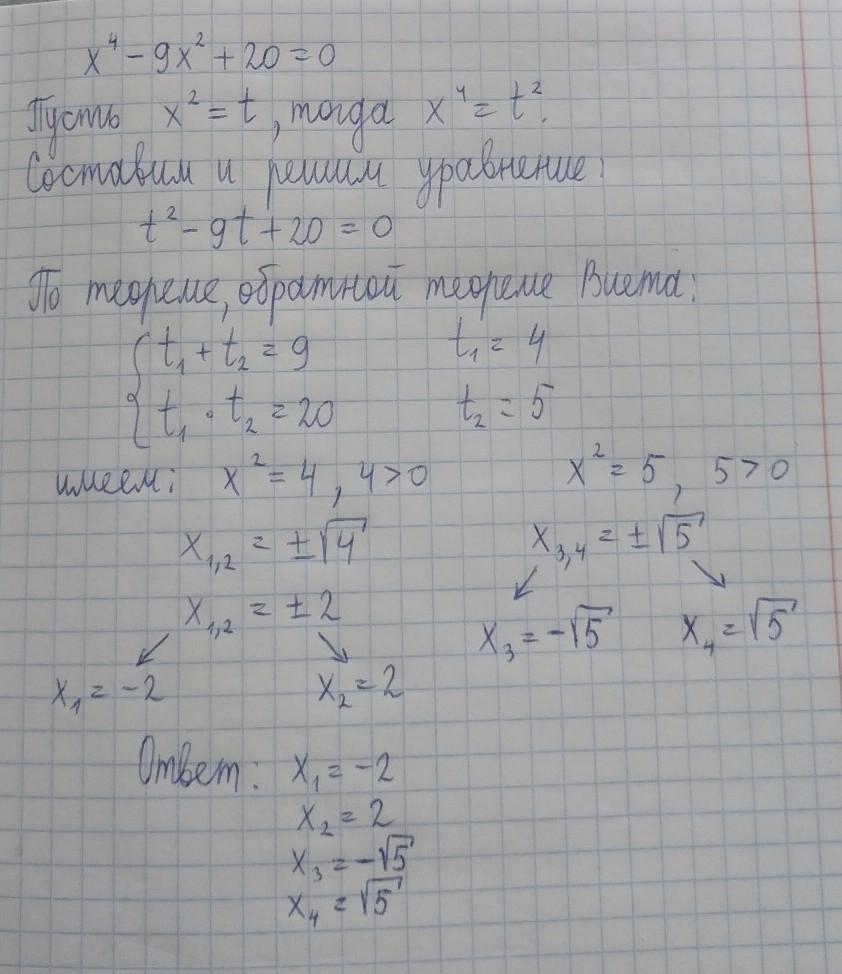 x⁴ - 9x² + 20 = 0
Пусть x² = t, тогда x⁴ = t².
Составим и решим уравнение:
t² - 9t + 20 = 0
По теореме, обратной теореме Виета:
{ t₁ + t₂ = 9 t₁ = 4
t₁ · t₂ = 20 t₂ = 5
имеем: x² = 4, 4 > 0 x² = 5, 5 > 0
x₁,₂ = ±√4 x₃,₄ = ±√5
x₁,₂ = ±2 x₃ = -√5 x₄ = √5
x₁ = -2 x₂ = 2
Ответ: x₁ = -2
x₂ = 2
x₃ = -√5
x₄ = √5